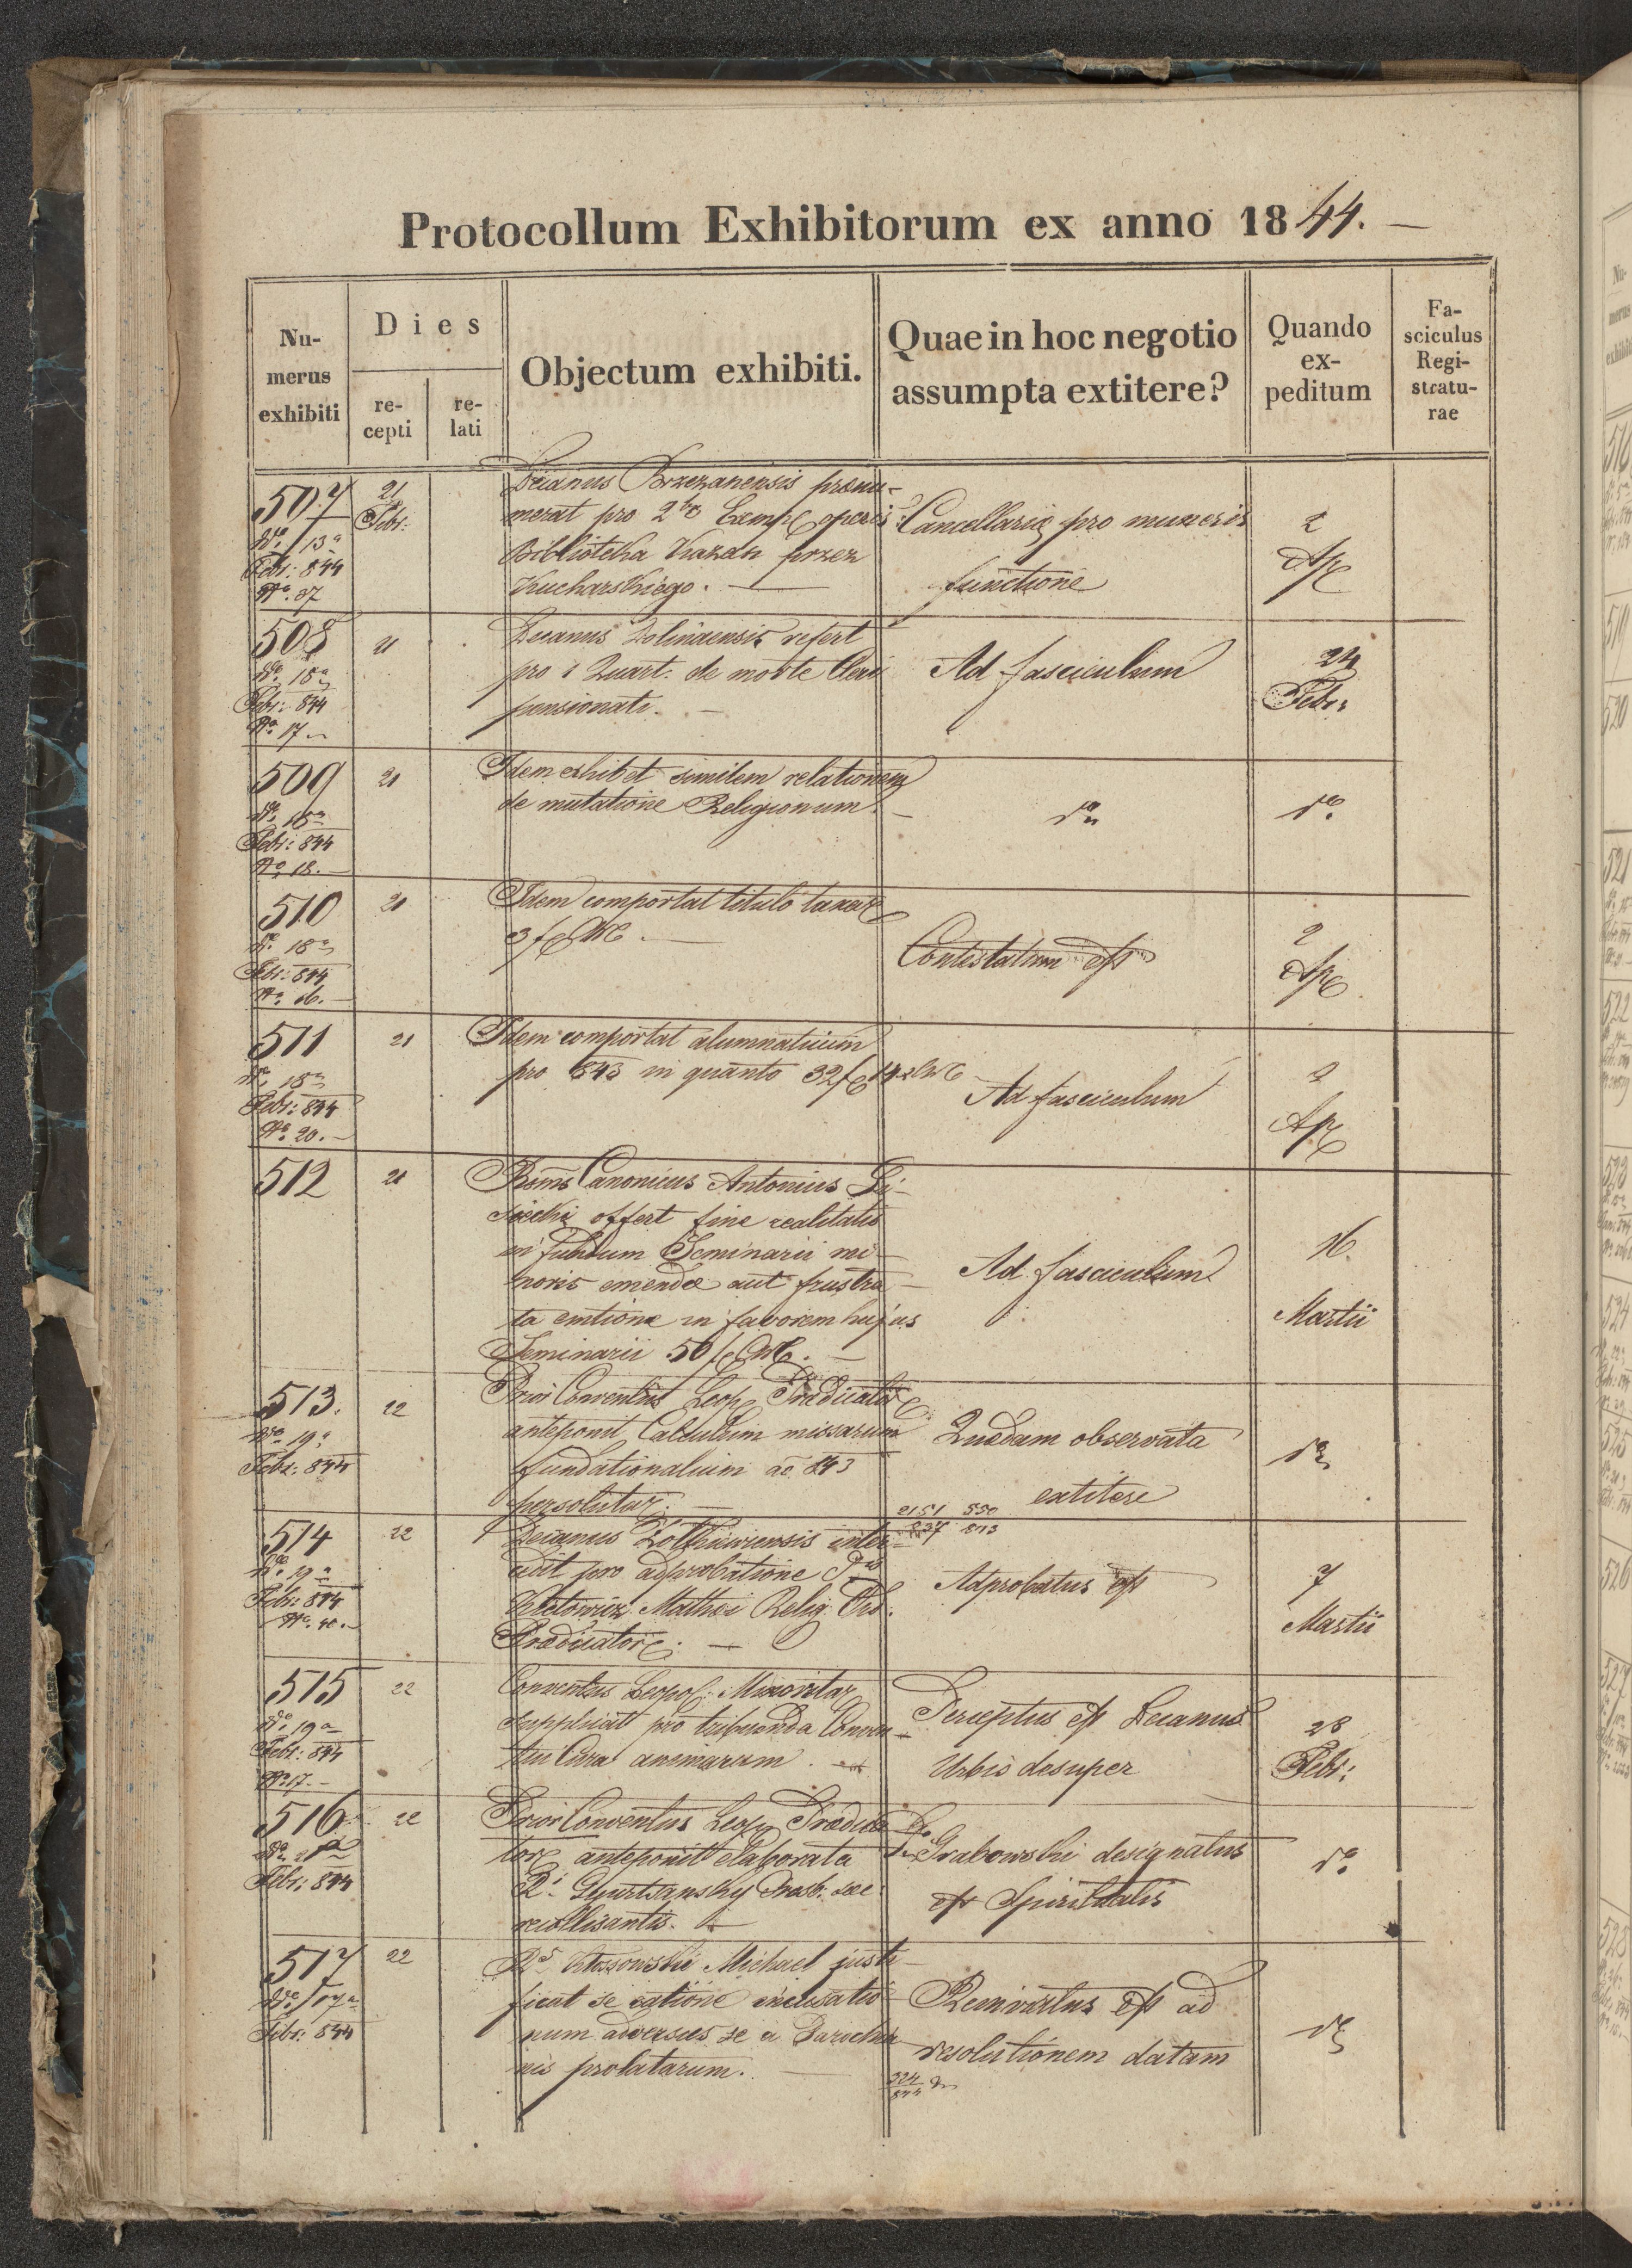 Protocollum Exhibitorum ex anno 1844. —
Nu-
merus
exhibiti
Dies
re-
cepti
re-
lati
Objectum exhibiti.
Quae in hoc negotio
assumpta extitere?
Quando
ex-
peditum
Fa-
sciculus
Regi-
stratu-
rae
507
13a
Febr: 844
No. 37
21
Febr:
Decanus Brzezanensis prænu-
merat pro 2bus Exempl operis
Biblioteka Kazań przez
Kucharskiego. —
Cancellariæ pro muneris
functione
2
Apr
508
de 18a
Febr: 844
No. 17
21
Decanus Dolinaensis refert
pro 1 Quart. de morte Cleri
pensionati. —
Ad fasciculum
24
Febr:
509
de 18a
Febr: 844
No. 18. —
21
Idem exhibet similem relationem
de mutatione Religionum. —
do
do
510
de 18a
Febr: 844
No. 16. —
21
Idem comportat titulo taxar
3 f CM. —
Contestatum est
2
Apr
511
de 18a
Febr: 844
No. 20. —
21
Idem comportat alumnaticum
pro 843 in quanto 32 f 14 x CM
Ad fasciculum
2
Apr
512
21
Rsms Canonicus Antonius
offert fine realitatis
in fundum Seminarii mi-
noris emendæ aut frustra-
ta emtione in favorem hujus
Seminarii 50 f CM. —
Ad fasciculum
16
Martii
513.
de 19a
Febr: 844
22
Prior Conventus Leop Prædicator
anteponit Calculum missarum
fundationalium ac 843
persolutar. —
Quædam observata
extitere
2151 550
837 843
do
514
de 19a
Febr: 844
No. 40. —
22
Decanus Zolkiewensis inter-
cedit pro adprobatione
Mathæi Relig. Ord.
Prædicator. —
Adprobatus est
7
Martii
515
de 19a
Febr: 844
No 17. —
22
Conventus Leopol: Minoritar
supplicat pro tribuenda Conven-
tui Cura animarum. —
Perceptus est Decanus
Urbis desuper
28
Febr:
516
Febr: 844
22
Prior Conventus Leop Prædica-
tor anteponit elaborata
Presb. sæc
recollisantis. —
Grabowski designatus
est Spiritualis
do
517
de 17a
Febr: 844
22
Rds Kossowski Michael justi-
ficat se ratione incusatio-
num adversus se a Parochia-
nis prolatarum. —
Reinviatus est ad
resolutionem datam
324
844
do